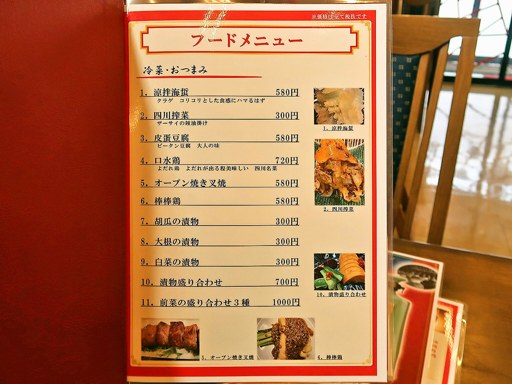 ※価格は全て税抜です
フードメニュー
冷菜・おつまみ
1. 涼拌海蜇 580円
クラゲ コリコリとした食感にハマるはず
2. 四川搾菜 300円
ザーサイの純油掛け
3. 皮蛋豆腐 580円
ピータン豆腐 大人の味
4. 口水鶏 720円
よだれ鶏 よだれが出る程美味しい 四川名菜
5. オーブン焼き叉焼 580円
6. 棒棒鶏 580円
7. 胡瓜の漬物 300円
8. 大根の漬物 300円
9. 白菜の漬物 300円
10. 漬物盛り合わせ 700円
11. 前菜の盛り合わせ3種 1000円
1. 涼拌海蜇
2. 四川搾菜
10. 漬物盛り合わせ
5. オーブン焼き叉焼
6. 棒棒鶏